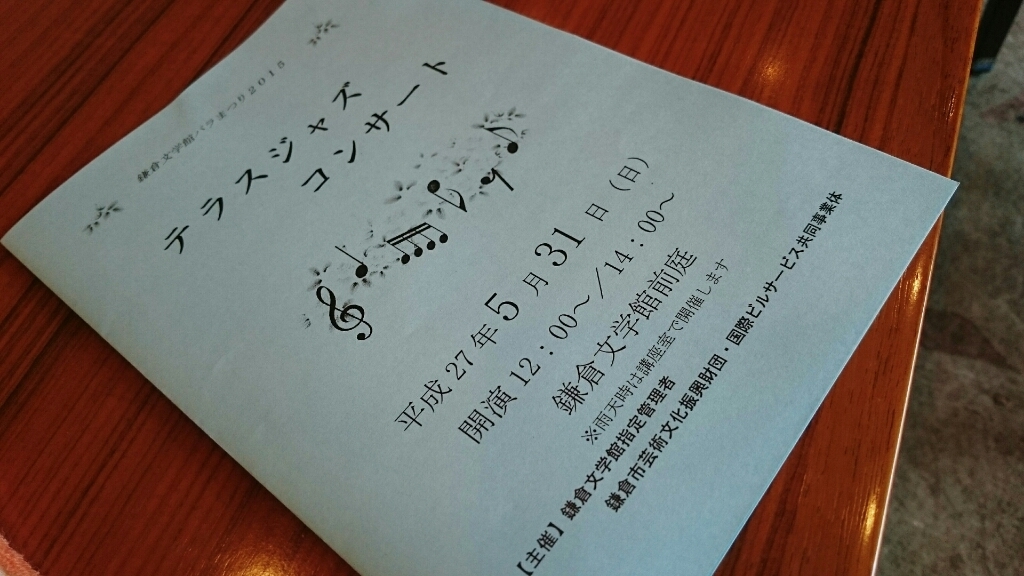 鎌倉文学館バラまつり2015
テラスジャズ
コンサート
平成27年5月31日（日）
開演12：00～／14：00～
鎌倉文学館前庭
※雨天時は講座室で開催します
【主催】鎌倉文学館指定管理者
鎌倉市芸術文化振興財団・国際ビルサービス共同事業体